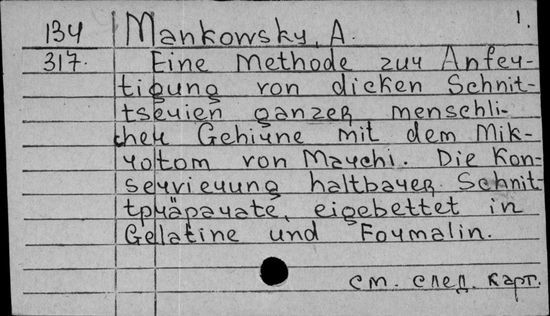 1.
134 Mankowsky, A.
317. Eine Methode zur Anfer-
tigung von dicken Schnit-
tserien ganzer menschli-
cher Gehirne mit dem Mik-
rotom von Marchi. Die Kon-
servierung haltbarer Schnit-
tpräparate, eigebettet in
Gelatine und Formalin.
см. след. карт.